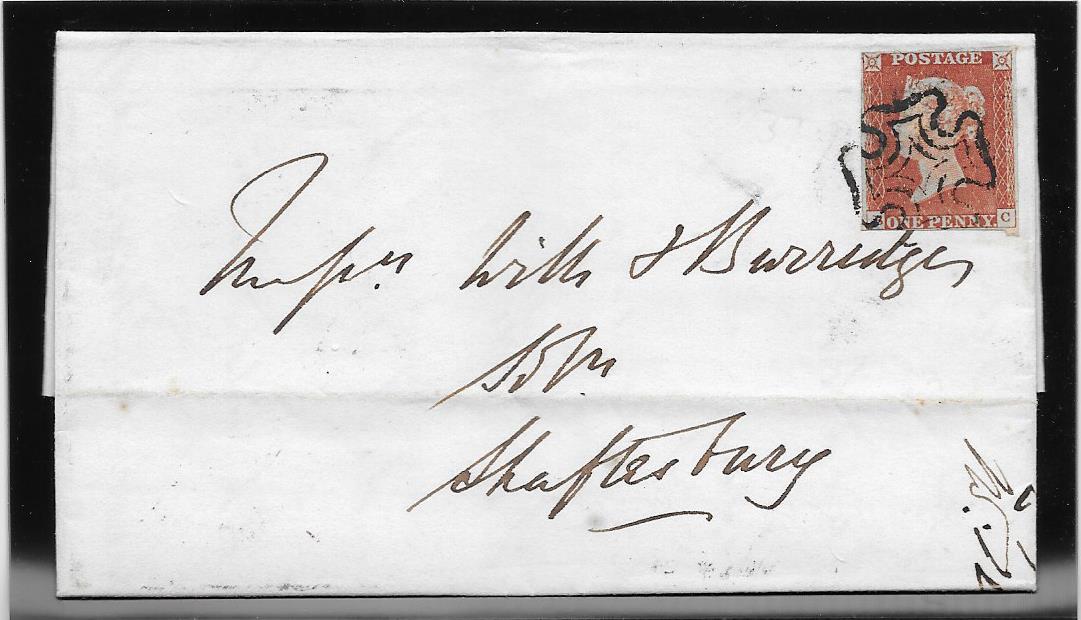 POSTAGE
ONE PENNY
C
Messrs Wills & Burridges
Solrs
Shaftesbury